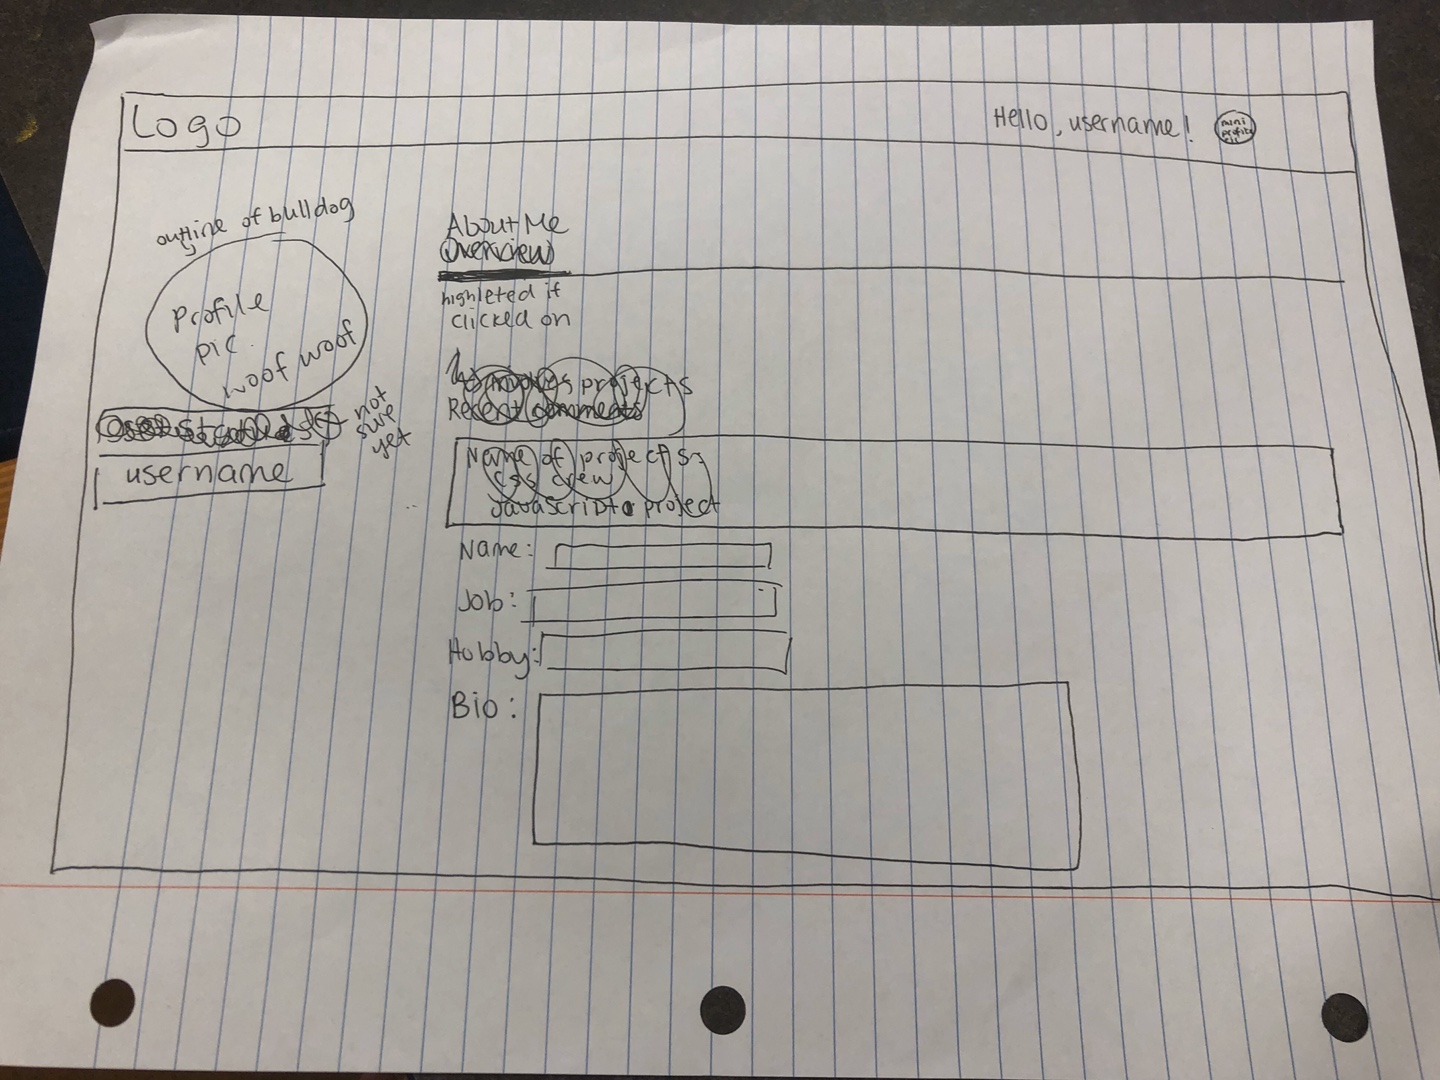 Logo
Hello, username!
mini
profile
outline of bulldog
Profile
pic
woof woof
not
sure
yet
username
About Me
Overview
highleted if
clicked on
projects
Recent comments
Name of projects
css crew
Javascript project
Name:
Job:
Hobby:
Bio: